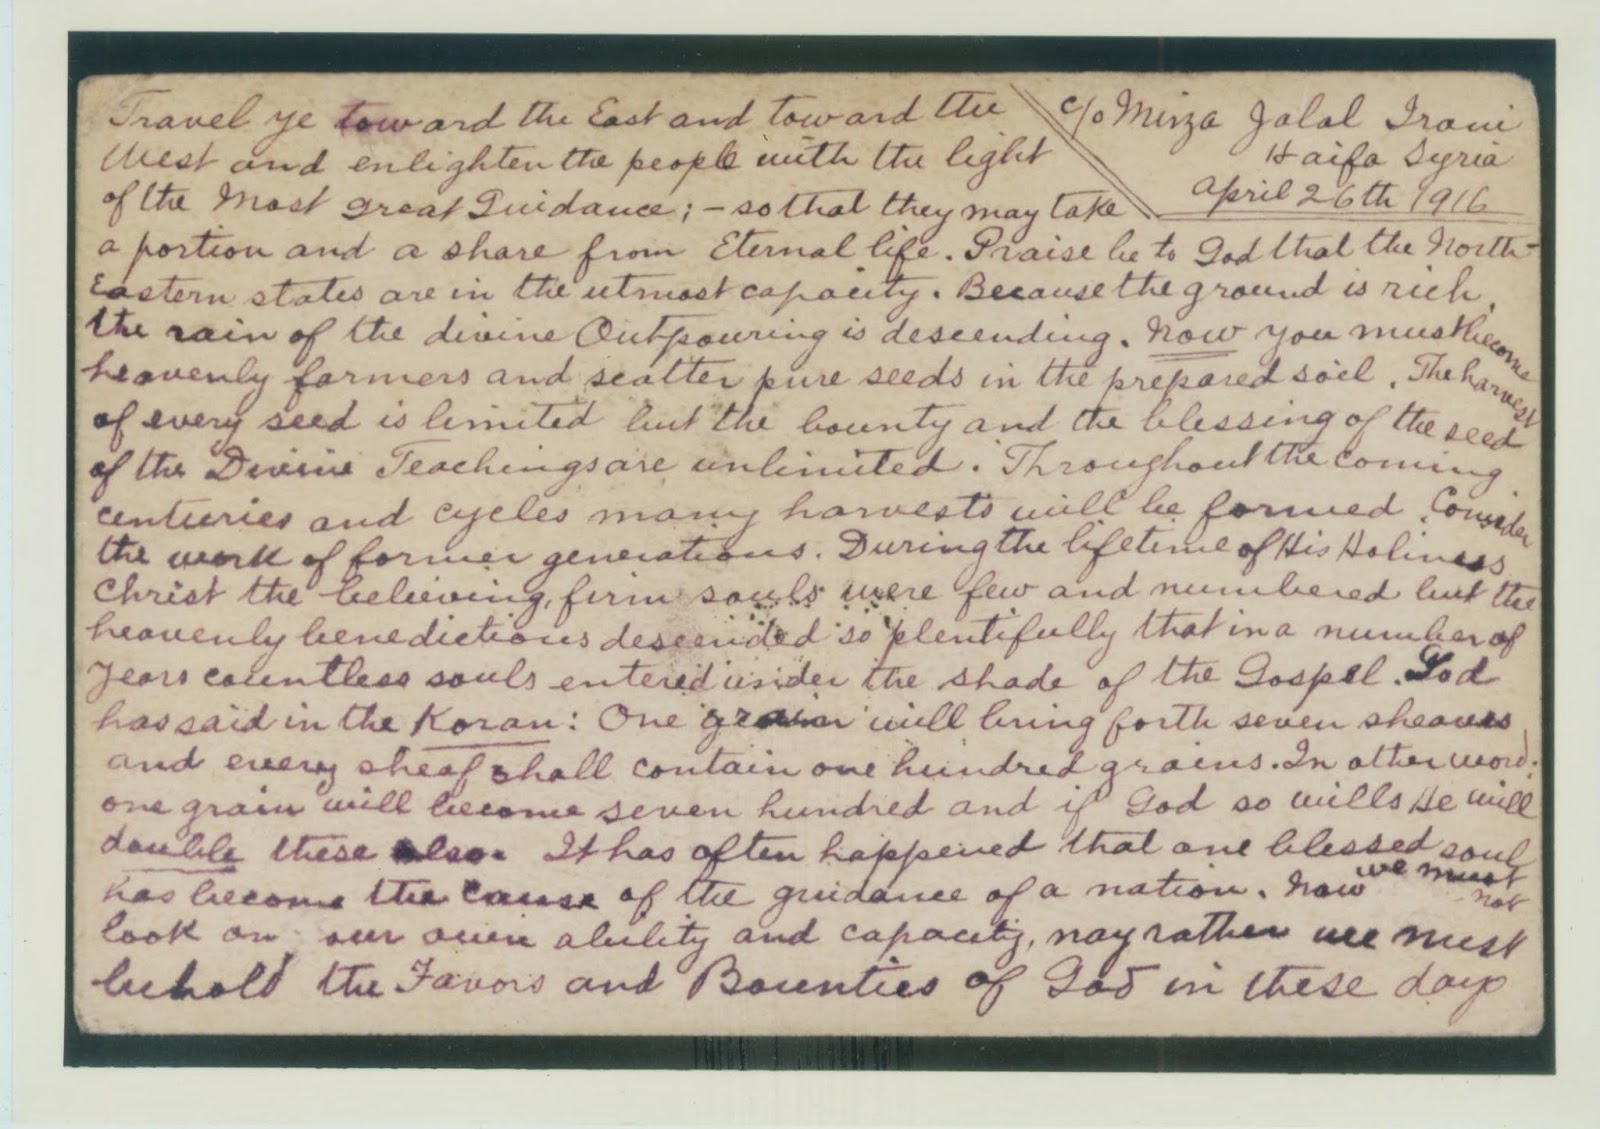 c/o Mirza Jalal Irani
Haifa Syria
April 26th 1916
Travel ye toward the East and toward the
West and enlighten the people with the light
of the Most Great Guidance; – so that they may take
a portion and a share from Eternal life. Praise be to God that the North-
Eastern states are in the utmost capacity. Because the ground is rich,
the rain of the divine Outpouring is descending. Now you must become
heavenly farmers and scatter pure seeds in the prepared soil. The harvest
of every seed is limited but the bounty and the blessing of the seed
of the Divine Teachings are unlimited. Throughout the coming
centuries and cycles many harvests will be formed. Consider
the work of former generations. During the lifetime of His Holiness
Christ the believing, firm souls were few and numbered but the
heavenly benedictions descended so plentifully that in a number of
years countless souls entered under the shade of the Gospel. God
has said in the Koran: One grain will bring forth seven sheaves
and every sheaf shall contain one hundred grains. In other word,
one grain will become seven hundred and if God so wills He will
double these also. It has often happened that one blessed soul
has become the cause of the guidance of a nation. Now we must not
look on our own ability and capacity, nay rather we must
behold the Favors and Bounties of God in these days